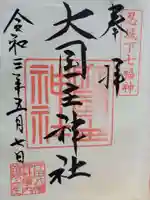 忍城下七福神
奉拝
大国主神社
令和三年五月七日